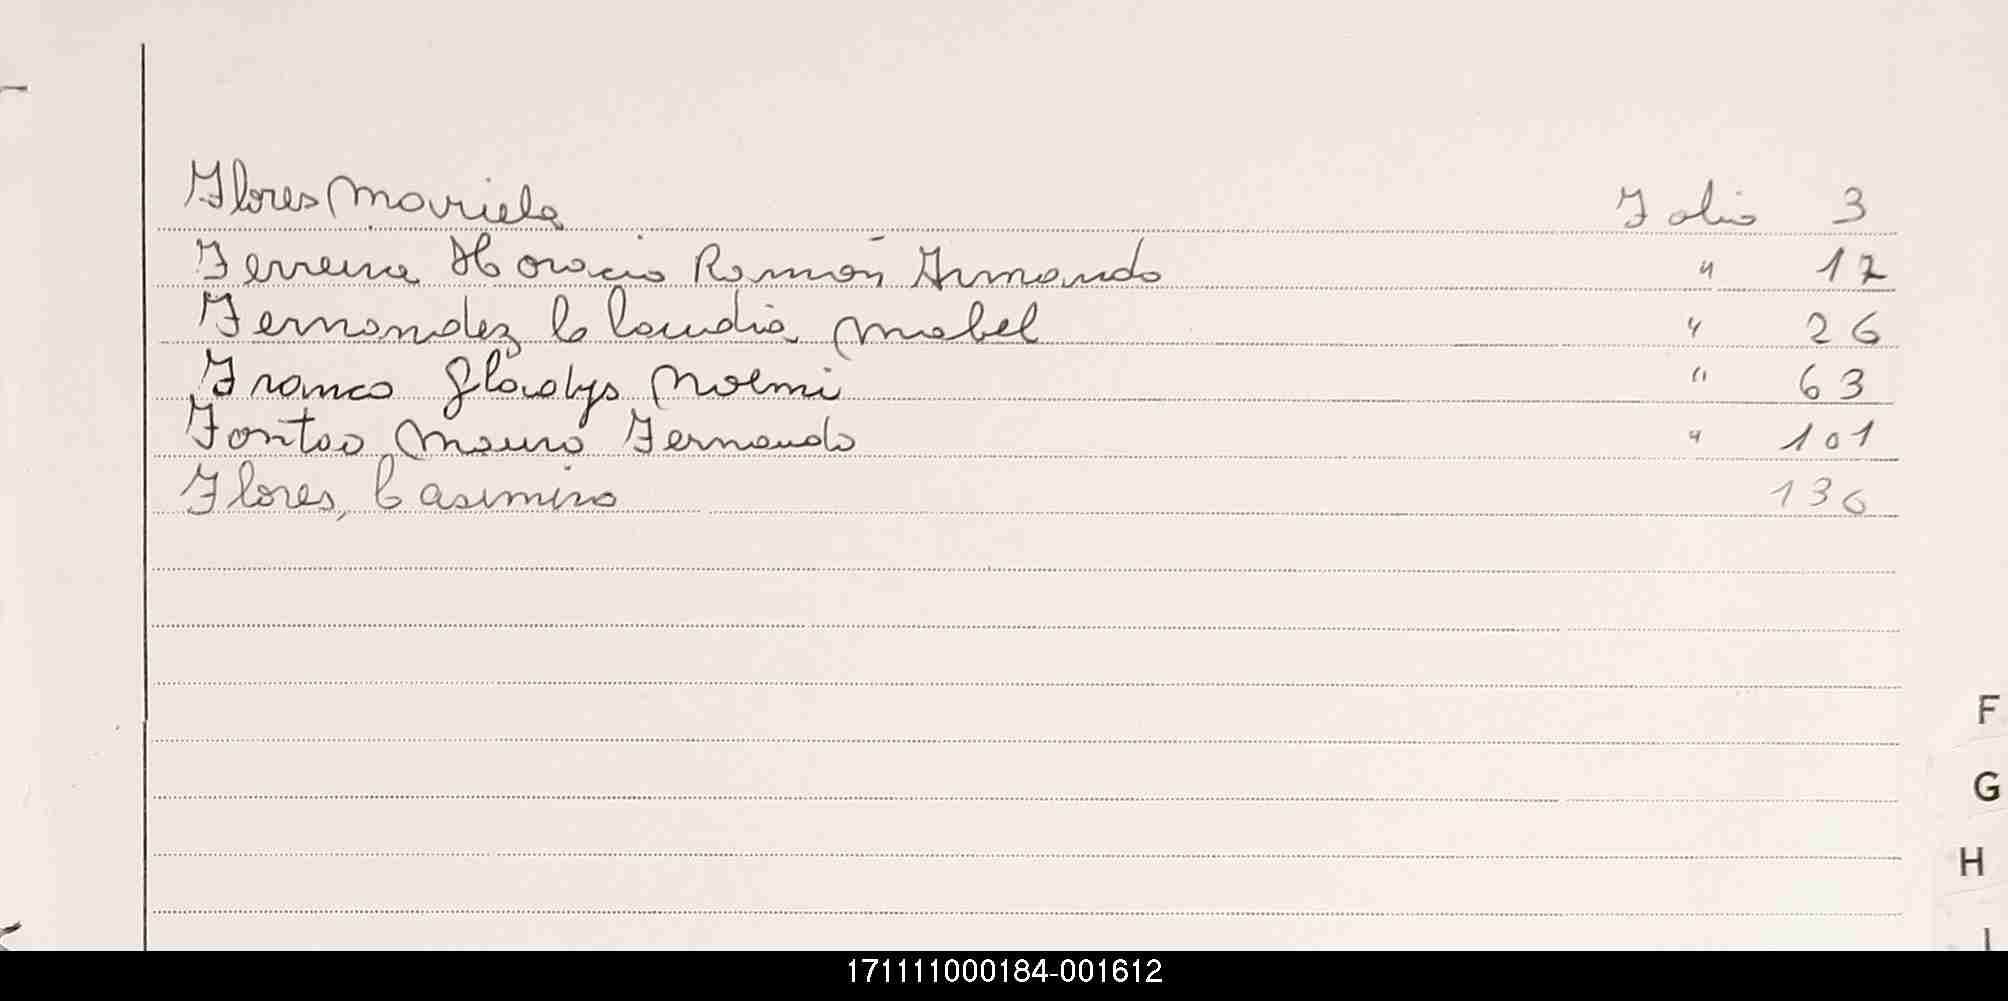 Flores Mariela Folio 3
Ferreira Horacio Ramón Armando " 17
Fernandez Claudia Mabel " 26
Franco Gladys Noemi " 63
Fontao Mauro Fernando " 101
Flores, Casimiro 136
F
G
H
I
171111000184-001612